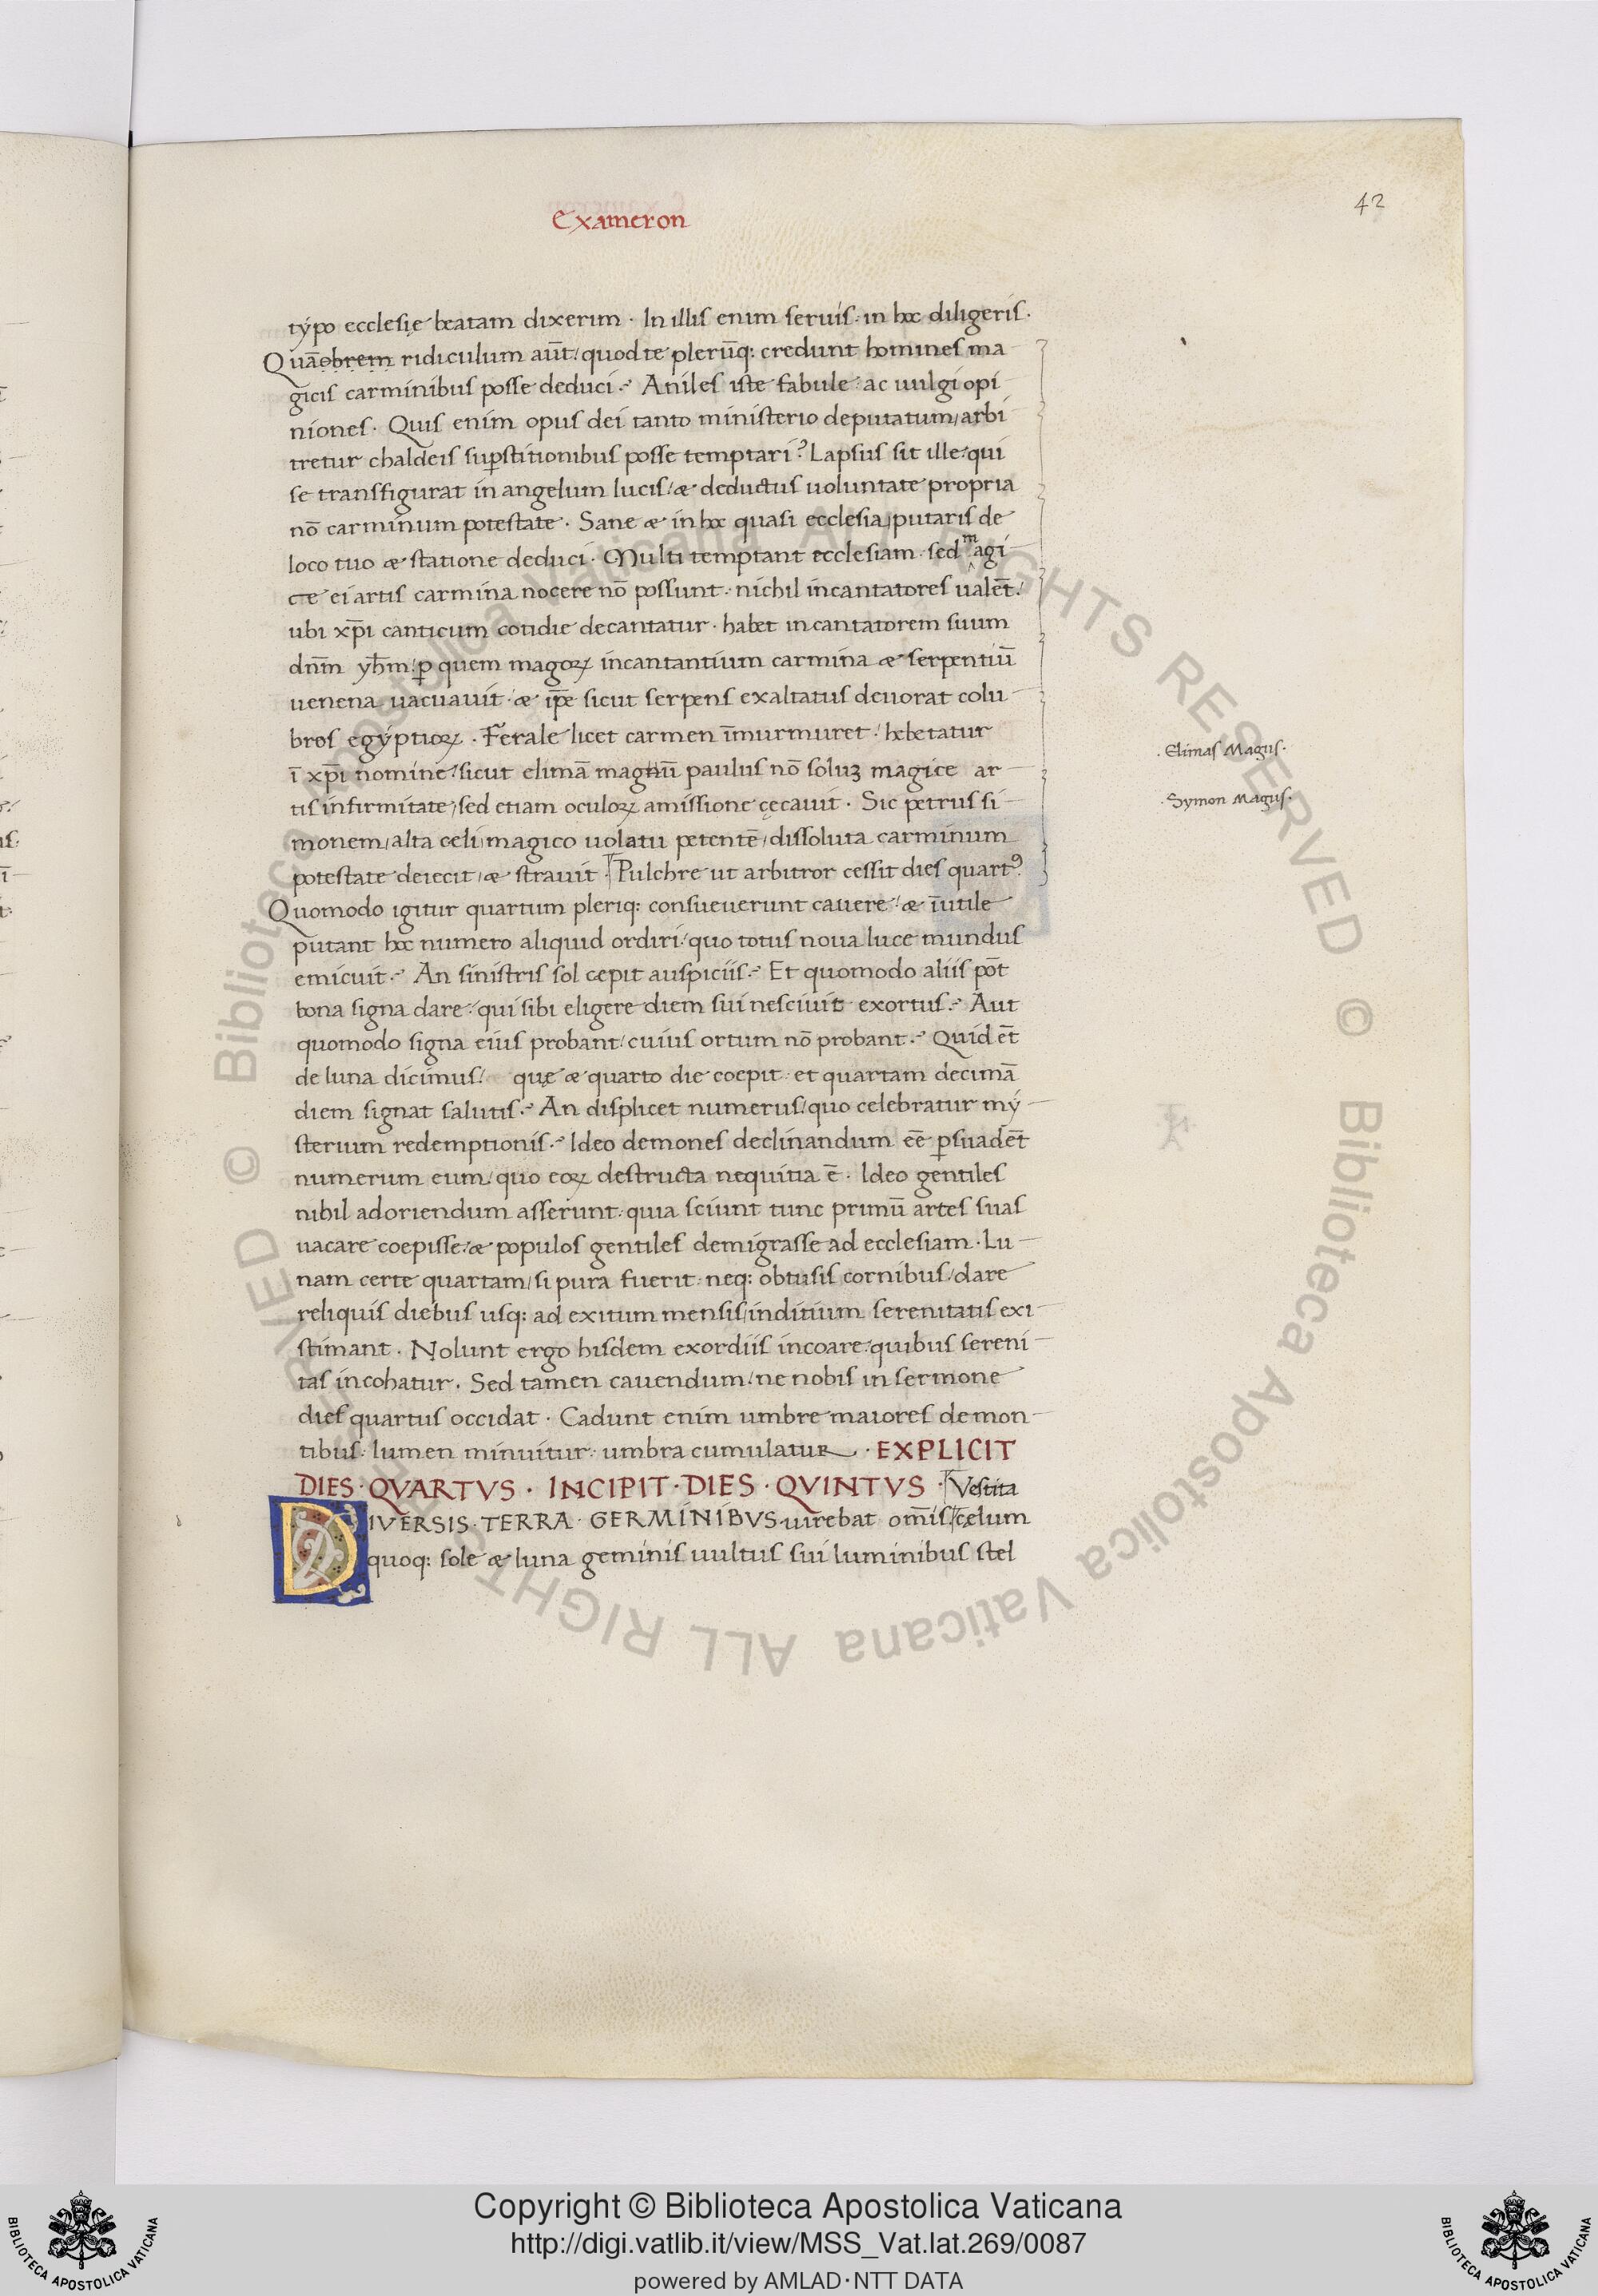 Exameron
42
typo ecclesię beatam dixerim · In illis enim seruis: in hoc diligeris ·
Quā obrem ridiculum aūt / quod te plerūq: credunt homines ma
gicis carminibus posse deduci · Aniles iste fabule: ac uulgi opi
niones · Quis enim opus dei tanto ministerio deputatum / arbi
tretur chaldeis suꝑstitionibus posse temptari? Lapsus sit ille: qui
se transfigurat in angelum lucis / & deductus uoluntate propria
nō carminum potestate · Sane & in hoc quasi ecclesia / putaris de
loco tuo & statione deduci · Multi temptant ecclesiam · sed magi
cę ei artis carmina nocere nō possunt · nichil incantatores ualēt /
ubi xp̄i canticum cotidie decantatur · habet incantatorem suum
dnm̄ yhm̄ / ꝑ quem magoꝝ incantantium carmina & serpentiū
uenena uacuauit · & ip̄e sicut serpens exaltatus deuorat colu
bros egyptioꝝ · Ferale licet carmen īmurmuret / hebetatur
ī xp̄i nomine / sicut elimā magnū paulus nō soluꝫ magice ar
tis infirmitate, sed etiam oculoꝝ amissione cęcauit · Sic petrus si
monem / alta celi / magico uolatu petentē / dissoluta carminum
potestate deiecit / & strauit · Pulchre ut arbitror cessit dies quartꝰ
Quomodo igitur quartum pleriq: consueuerunt cauere / & īutile
putant hoc numero aliquid ordiri / quo totus noua luce mundus
emicuit · An sinistris sol cepit auspiciis · Et quomodo aliis pōt
bona signa dare / qui sibi eligere diem sui nesciuit exortus · Aut
quomodo signa eius probant / cuius ortum nō probant · Quid ēt
de luna dicimus / quę & quarto die coepit · et quartam decimā
diem signat salutis · An displicet numerus / quo celebratur my
sterium redemptionis · Ideo demones declinandum ēē ꝑsuadēt
numerum eum / quo eoꝝ destructa nequitia ē · Ideo gentiles
nihil adoriendum asserunt: quia sciunt tunc primū artes suas
uacare coepisse: & populos gentiles demigrasse ad ecclesiam · Lu
nam certe quartam / si pura fuerit: neq: obtusis cornibus / dare
reliquis diebus usq: ad exitum mensis / inditium serenitatis exi
stimant · Nolunt ergo hisdem exordiis incoare: quibus sereni
tas incohatur · Sed tamen cauendum / ne nobis in sermone
dies quartus occidat · Cadunt enim umbre maiores de mon
tibus: lumen minuitur: umbra cumulatur · EXPLICIT
DIES · QVARTVS · INCIPIT · DIES · QVINTVS · Vestita
DIVERSIS · TERRA · GERMINIBVS uirebat om̄is / cęlum
quoq: sole & luna geminis uultus sui luminibus stel
· Elimas Magus ·
· Symon Magus ·
© Biblioteca Apostolica Vaticana ALL RIGHTS RESERVED © Biblioteca Apostolica Vaticana ALL RIGHTS RESERVED
Copyright © Biblioteca Apostolica Vaticana
http://digi.vatlib.it/view/MSS_Vat.lat.269/0087
powered by AMLAD·NTT DATA
BIBLIOTECA APOSTOLICA VATICANA
BIBLIOTECA APOSTOLICA VATICANA